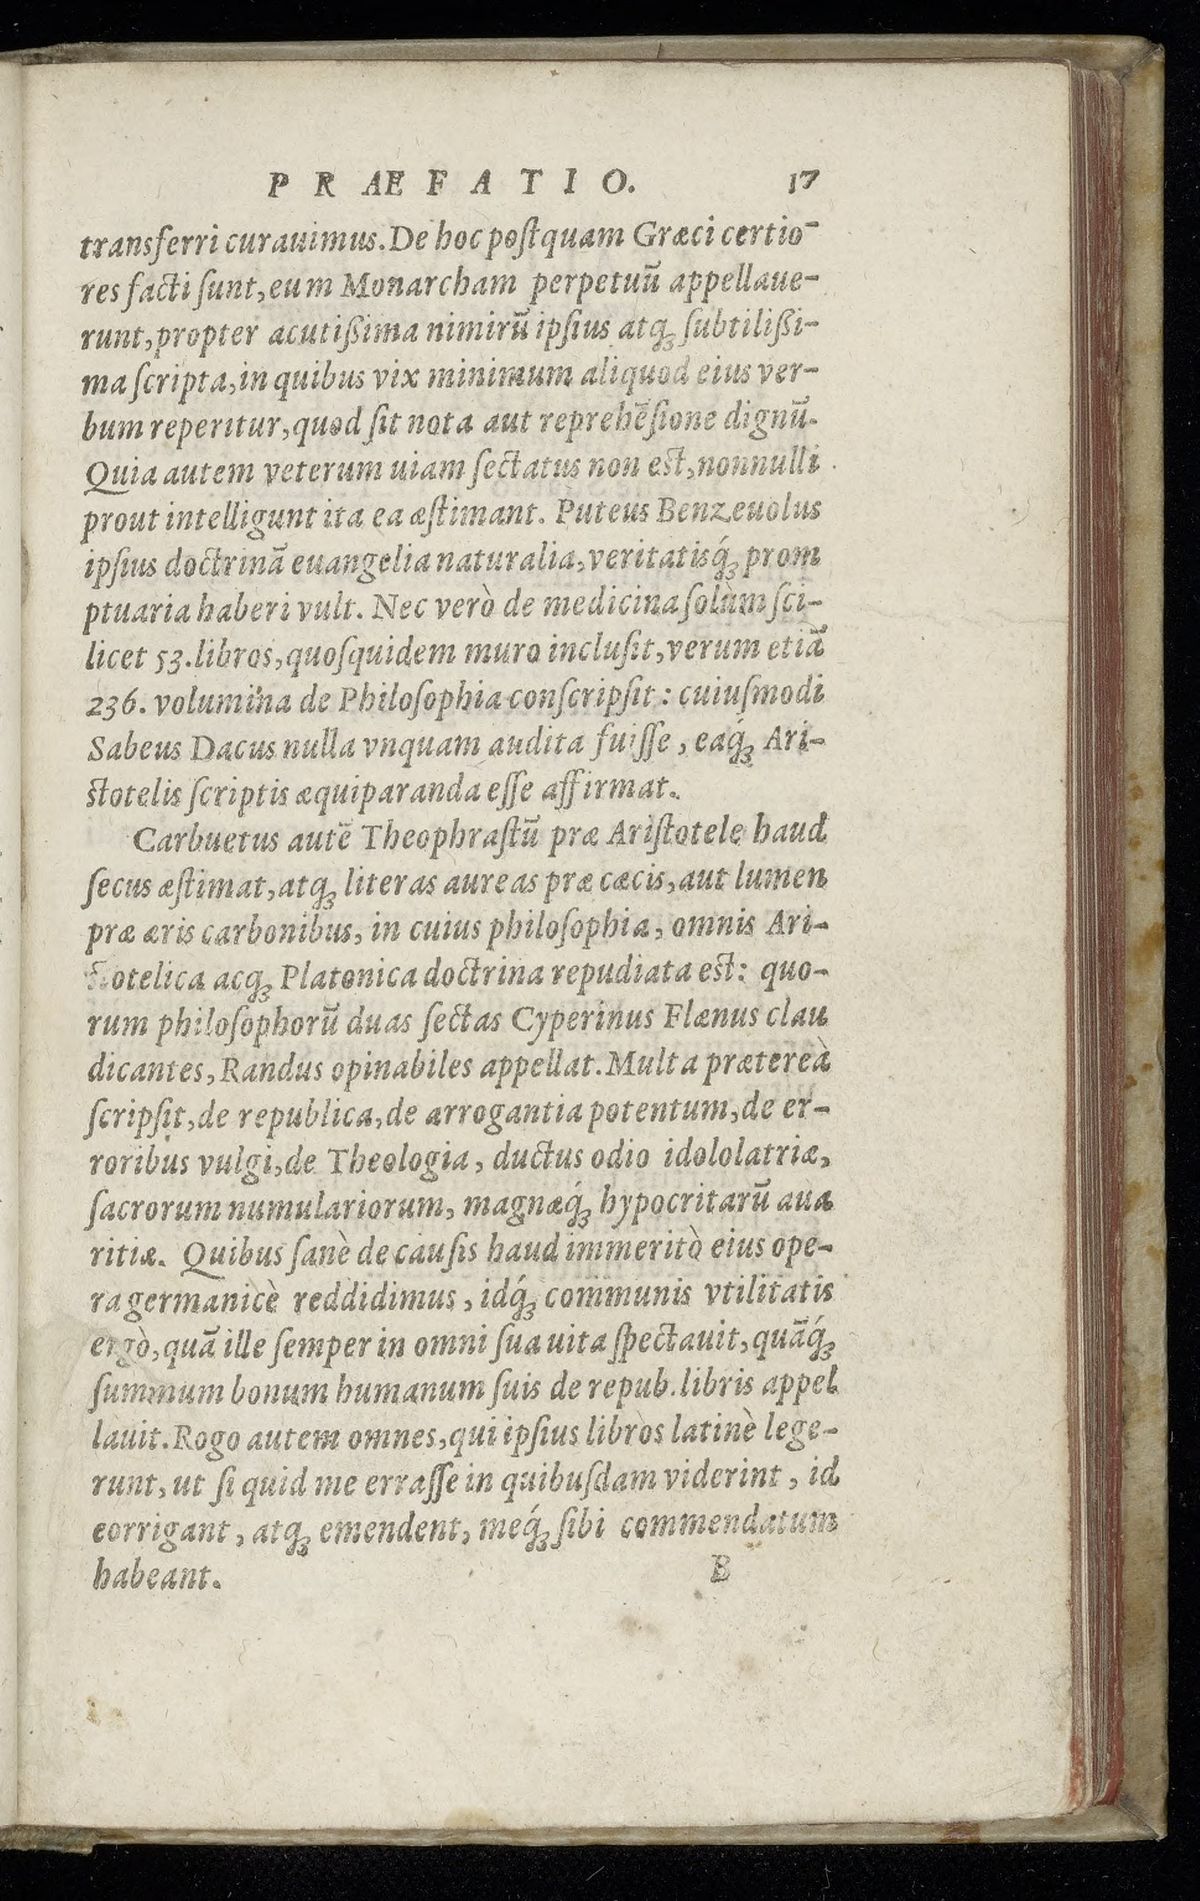 PRÆFATIO. 17
transferri curauimus. De hoc postquam Græci certio-
res facti ſunt, eum Monarcham perpetuū appellaue-
runt, propter acutißima nimirū ipſius atq; ſubtilißi-
ma ſcripta, in quibus vix minimum aliquod eius ver-
bum reperitur, quod ſit nota aut reprehēſione dignū.
Quia autem veterum uiam ſectatus non eſt, nonnulli
prout intelligunt ita ea æſtimant. Puteus Benzeuolus
ipſius doctrinā euangelia naturalia, veritatisq́; prom
ptuaria haberi vult. Nec verò de medicina ſolùm ſci-
licet 53. libros, quoſquidem muro incluſit, verum etiā
236. volumina de Philoſophia conſcripſit: cuiuſmodi
Sabeus Dacus nulla vnquam audita fuiſſe, eaq́; Ari-
ſtotelis ſcriptis æquiparanda eſſe affirmat.
Carbuetus autē Theophraſtū præ Ariſtotele haud
ſecus æſtimat, atq; literas aureas præ cæcis, aut lumen
præ æris carbonibus, in cuius philoſophia, omnis Ari-
ſtotelica acq; Platonica doctrina repudiata eſt: quo-
rum philoſophorū duas ſectas Cyperinus Flænus clau
dicantes, Randus opinabiles appellat. Multa prætereà
ſcripſit, de republica, de arrogantia potentum, de er-
roribus vulgi, de Theologia, ductus odio idololatriæ,
ſacrorum numulariorum, magnæq́; hypocritarū aua
ritiæ. Quibus ſanè de cauſis haud immeritò eius ope-
ra germanicè reddidimus, idq́; communis vtilitatis
ergò, quā ille ſemper in omni ſua uita ſpectauit, quāq́;
ſummum bonum humanum ſuis de repub. libris appel
lauit. Rogo autem omnes, qui ipſius libros latinè lege-
runt, ut ſi quid me erraſſe in quibuſdam viderint, id
corrigant, atq; emendent, meq́; ſibi commendatum
habeant. B